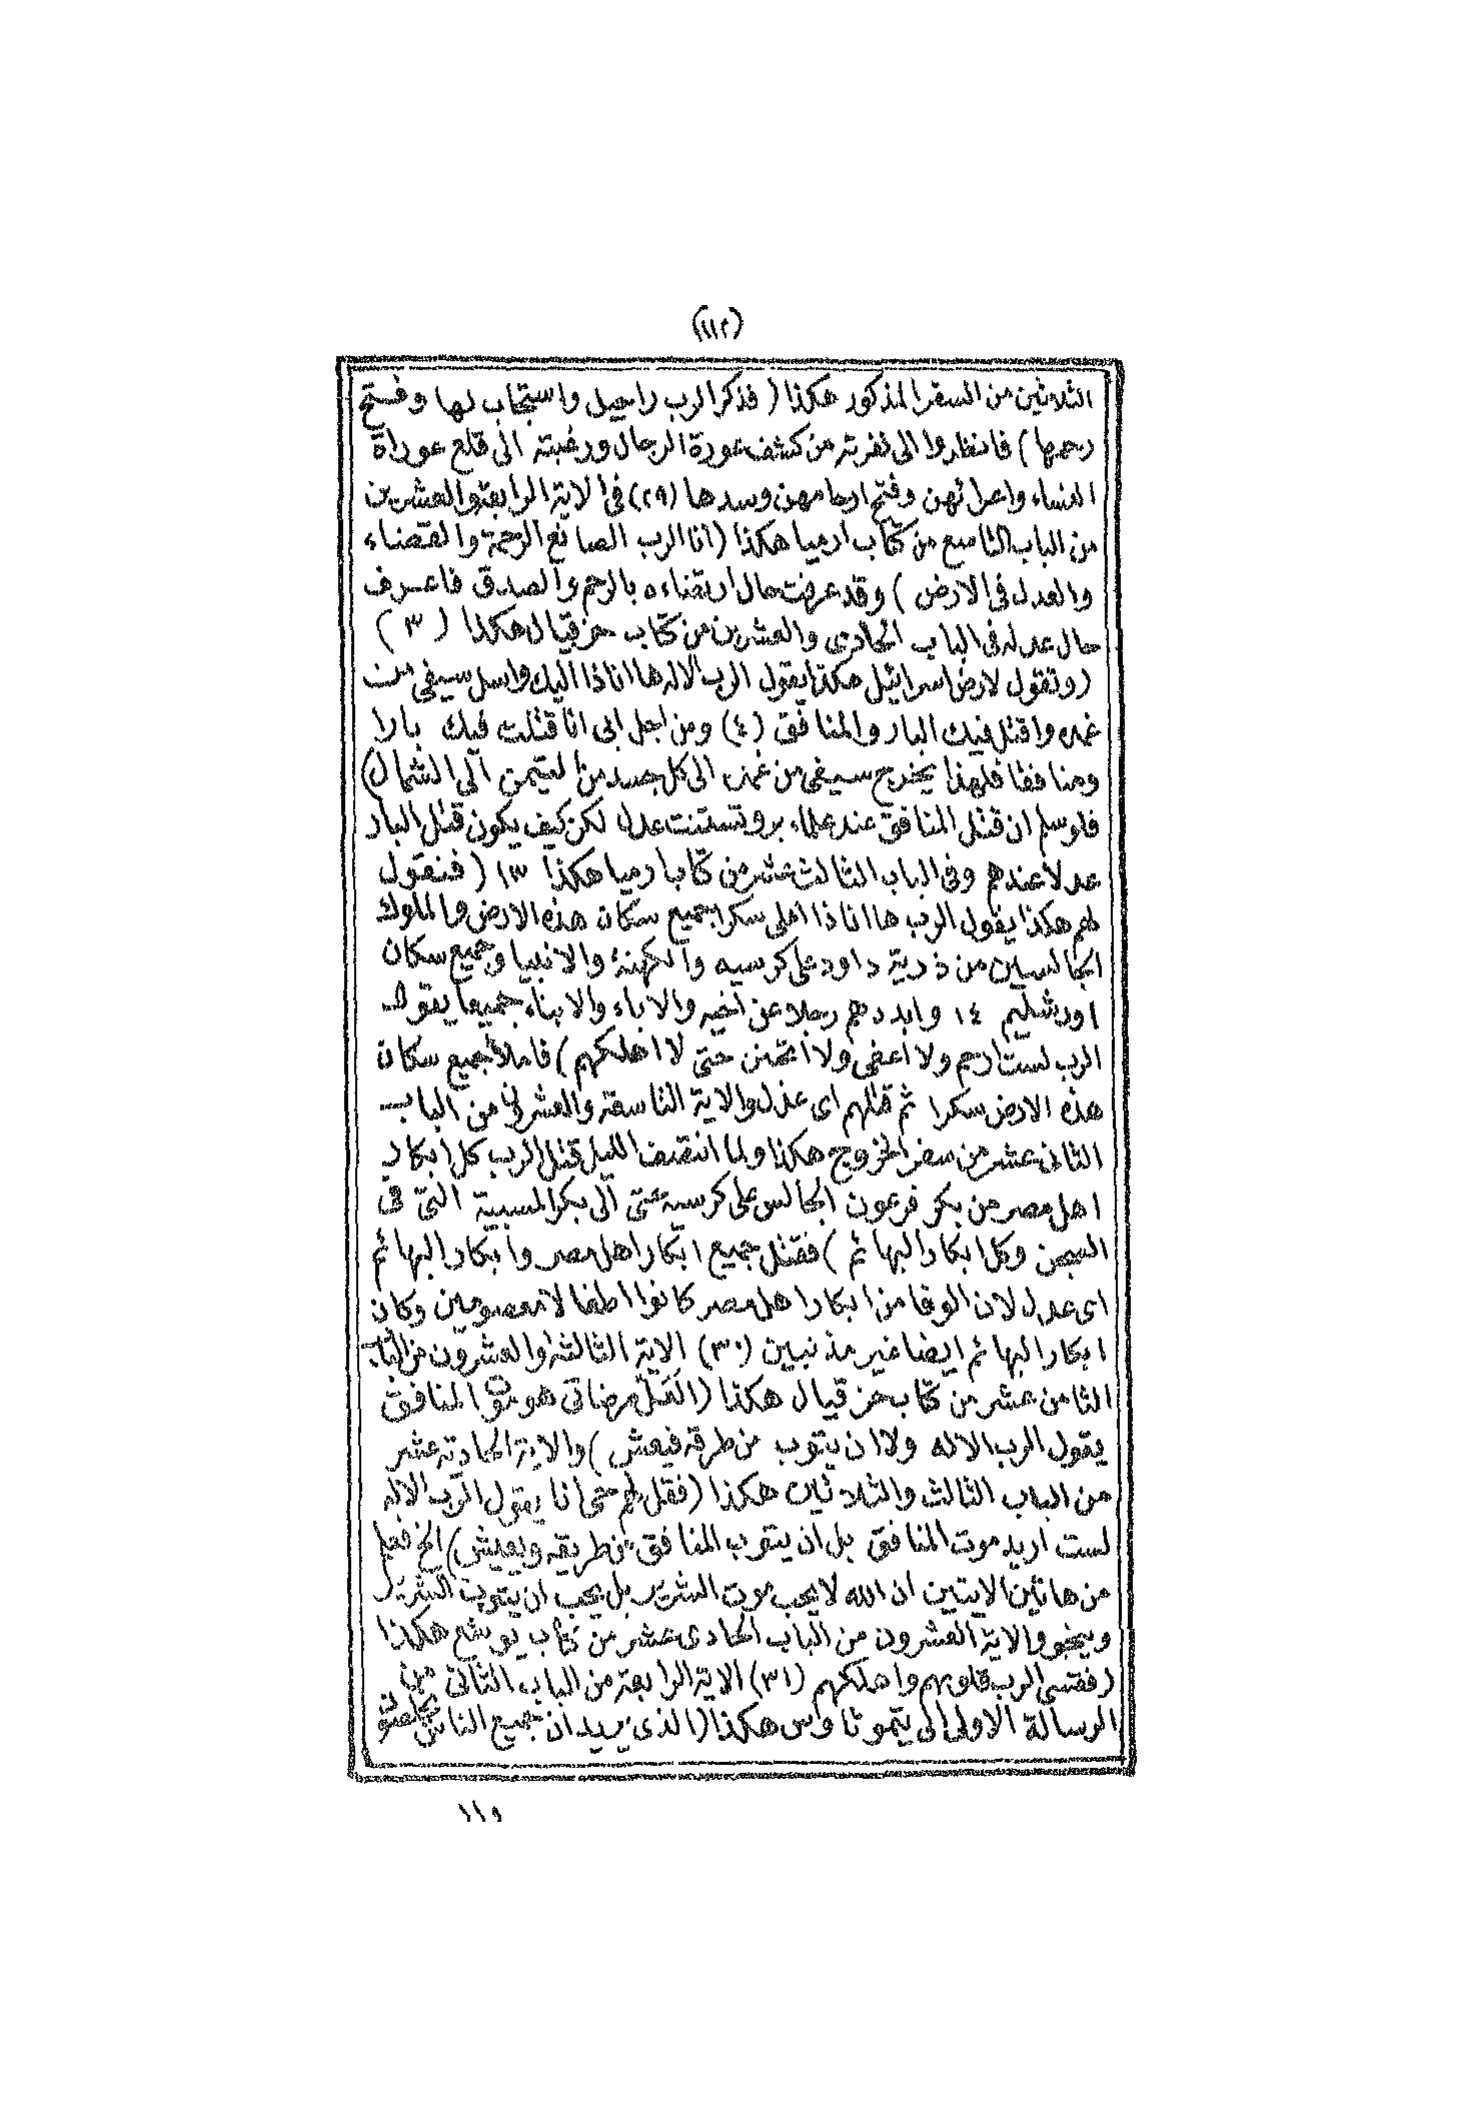 (١١٢)
الثلاثين من السفر المذكور هكذا ( فذكر الرب راحيل واستجاب لها وفتح
رحمها ) فانظروا الى نفرته من كشف عورة الرجال ورغبته الى قلع عوراة
النساء واعرائهن وفتح ارحامهن وسدها (٢٩) فى الاية الرابعة والعشرين
من الباب التاسع من كتاب ارميا هكذا (انا الرب الصانع الرحمة والقضاء
والعدل فى الارض ) وقد عرفت حال ارتضاءه بالرحم والصدق فاعرف
حال عدله فى الباب الحادى والعشرين من كتاب حزقيال هكذا (٣)
(وتقول لارض اسرائيل هكذا يقول الرب الاله ها اناذا اليك واسل سيفى من
غمده واقتل فيك البار والمنافق (٤) ومن اجل انى انا قتلت فيك بارا
ومنافقا فلهذا يخرج سيفى من غمده الى كل جسد من التيمن الى الشمال)
فلو سلم ان قتل المنافق عند علماء بروتستنت عدل لكن كيف يكون قتل البار
عدلا عندهم وفى الباب الثالث عشر من كتاب ارميا هكذا ١٣ (فنقول
لهم هكذا يقول الرب ها اناذا املى سكرا جميع سكان هذه الارض والملوك
الجالسين من ذرية داود على كرسيه والكهنة والانبيا وجميع سكان
اورشليم ١٤ وابددهم رجلا عن اخيه والاباء والابناء جميعا يقول
الرب لست ارحم ولا اعفى ولا اتحنن حتى لا اهلكهم) فاملأ جميع سكان
هذه الارض سكرا ثم قتلهم اى عدل والاية التاسعة والعشرون من الباب
الثانى عشر من سفر الخروج هكذا ولما انتصف الليل قتل الرب كل ابكار
اهل مصر من بكر فرعون الجالس على كرسيه حتى الى بكر المسبية التى فى
السجن وكل ابكار البهائم ) فقتل جميع ابكار اهل مصر وابكار البهائم
اى عدل لان الوفا من ابكار اهل مصر كانوا اطفالا معصومين وكان
ابكار البهائم ايضا غير مذنبين (٣٠) الاية الثالثة والعشرون من الباب
الثامن عشر من كتاب حزقيال هكذا (العل مرضاتى هو موت المنافق
يقول الرب الاله ولا ان يتوب من طرقه فيعش ) والاية الحادية عشر
من الباب الثالث والثلاثين هكذا (فقل لهم حى انا يقول الرب الاله
لست اريد موت المنافق بل ان يتوب المنافق من طريقه ويعيش) الخ فعلم
من هاتين الايتين ان الله لا يحب موت الشرير بل يحب ان يتوب الشرير
وينجو والاية العشرون من الباب الحادى عشر من كتاب يوشع هكذا
(فقسى الرب قلوبهم واهلكهم (٣١) الاية الرابعة من الباب الثانى من
الرسالة الاولى الى يتموثاوس هكذا (الذى يريد ان جميع الناس يخلصوا